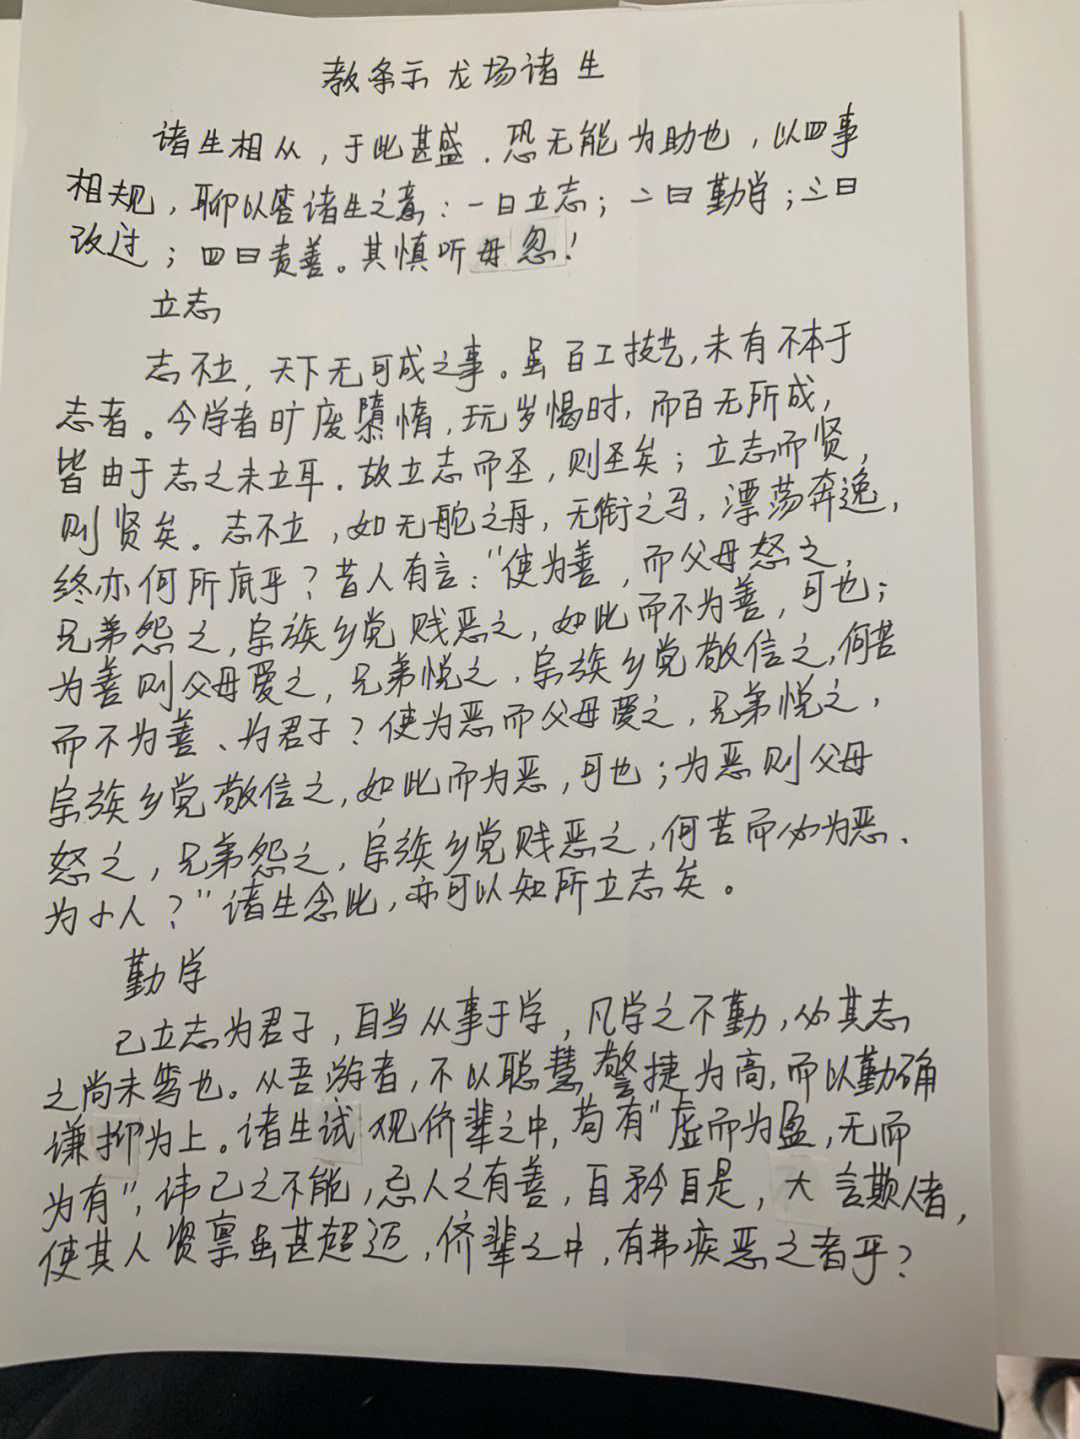 教条示龙场诸生
诸生相从，于此甚盛．恐无能为助也，以四事
相规，聊以答诸生之意：一曰立志；二曰勤学；三曰
改过；四曰责善。其慎听毋忽！
立志
志不立，天下无可成之事。虽百工技艺，未有不本于
志者。今学者旷废隳惰，玩岁愒时，而百无所成，
皆由于志之未立耳．故立志而圣，则圣矣；立志而贤，
则贤矣。志不立，如无舵之舟，无衔之马，漂荡奔逸，
终亦何所底乎？昔人有言："使为善，而父母怒之，
兄弟怨之，宗族乡党贱恶之，如此而不为善，可也；
为善则父母爱之，兄弟悦之．宗族乡党敬信之，何苦
而不为善、为君子？使为恶而父母爱之，兄弟悦之，
宗族乡党敬信之，如此而为恶，可也；为恶则父母
怒之，兄弟怨之，宗族乡党贱恶之，何苦而必为恶、
为小人？"诸生念此，亦可以知所立志矣。
勤学
已立志为君子，自当从事于学，凡学之不勤，必其志
之尚未笃也。从吾游者，不以聪慧警捷为高，而以勤确
谦抑为上。诸生试观侪辈之中，苟有"虚而为盈，无而
为有"，讳己之不能，忌人之有善，自矜自是，大言欺人者，
使其人资禀虽甚超迈，侪辈之中，有弗疾恶之者乎？